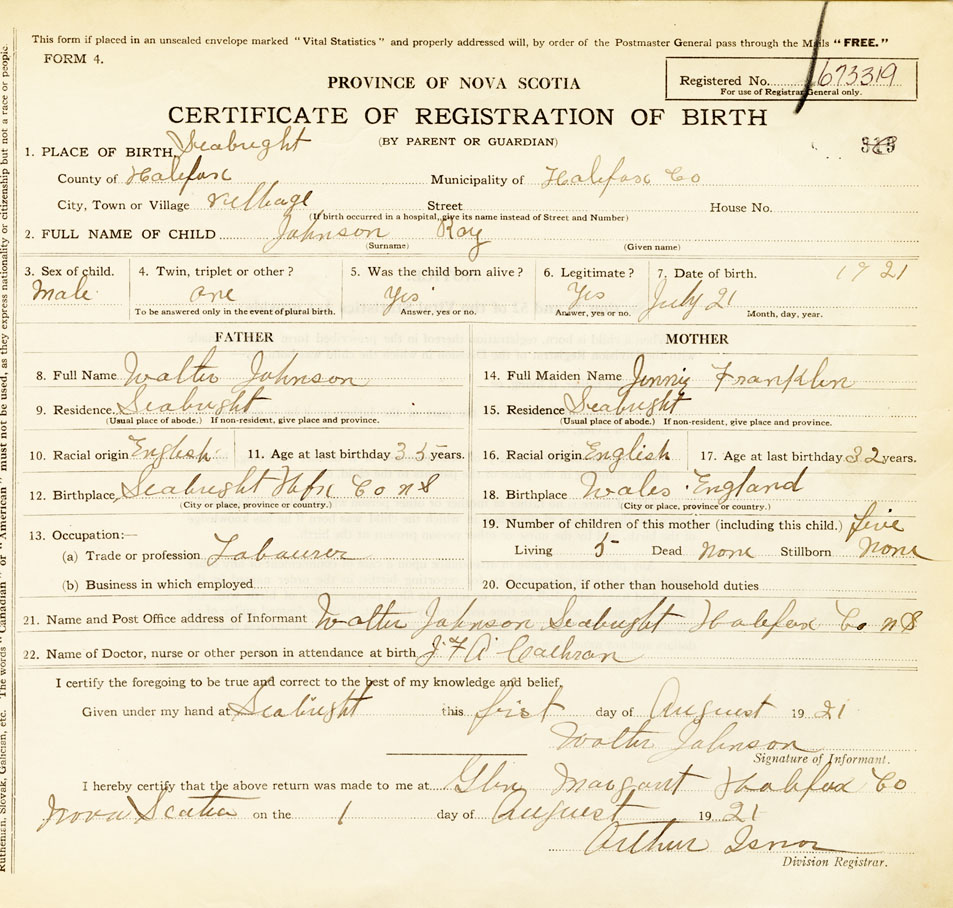 This form if placed in an unsealed envelope marked "Vital Statistics" and properly addressed will, by order of the Postmaster General pass through the Mails "FREE."
FORM 4.
PROVINCE OF NOVA SCOTIA
Registered No. 673319
For use of Registrar General only.
CERTIFICATE OF REGISTRATION OF BIRTH
(BY PARENT OR GUARDIAN)
1. PLACE OF BIRTH, Seabright
County of Halifax Municipality of Halifax Co
City, Town or Village village Street House No.
(If birth occurred in a hospital, give its name instead of Street and Number)
2. FULL NAME OF CHILD Johnson Roy
(Surname) (Given name)
3. Sex of child. 4. Twin, triplet or other? 5. Was the child born alive? 6. Legitimate? 7. Date of birth. 1921
Male one Yes Yes July 21
To be answered only in the event of plural birth. Answer, yes or no. Answer, yes or no. Month, day, year.
FATHER
8. Full Name Walter Johnson
9. Residence. Seabright
(Usual place of abode.) If non-resident, give place and province.
10. Racial origin English 11. Age at last birthday 35 years.
12. Birthplace, Seabright Hfx Co N S
(City or place, province or country.)
13. Occupation:—
(a) Trade or profession Labaurer
(b) Business in which employed
MOTHER
14. Full Maiden Name Jennie Franklin
15. Residence Seabright
(Usual place of abode.) If non-resident, give place and province.
16. Racial origin English 17. Age at last birthday 32 years.
18. Birthplace Wales England
(City or place, province or country.)
19. Number of children of this mother (including this child.) five
Living 5 Dead none Stillborn none
20. Occupation, if other than household duties
21. Name and Post Office address of Informant Walter Johnson Seabright Halifax Co N S
22. Name of Doctor, nurse or other person in attendance at birth J F A Cachran
I certify the foregoing to be true and correct to the best of my knowledge and belief,
Given under my hand at Seabright this first day of August 1921
Walter Johnson
Signature of Informant.
I hereby certify that the above return was made to me at Glen Margant Halifax Co
Nova Scotia on the 1 day of August 1921
Arthur Isnor
Division Registrar.
Ruthenian, Slovak, Galician, etc. The words "Canadian" or "American" must not be used, as they express nationality or citizenship but not a race or people.